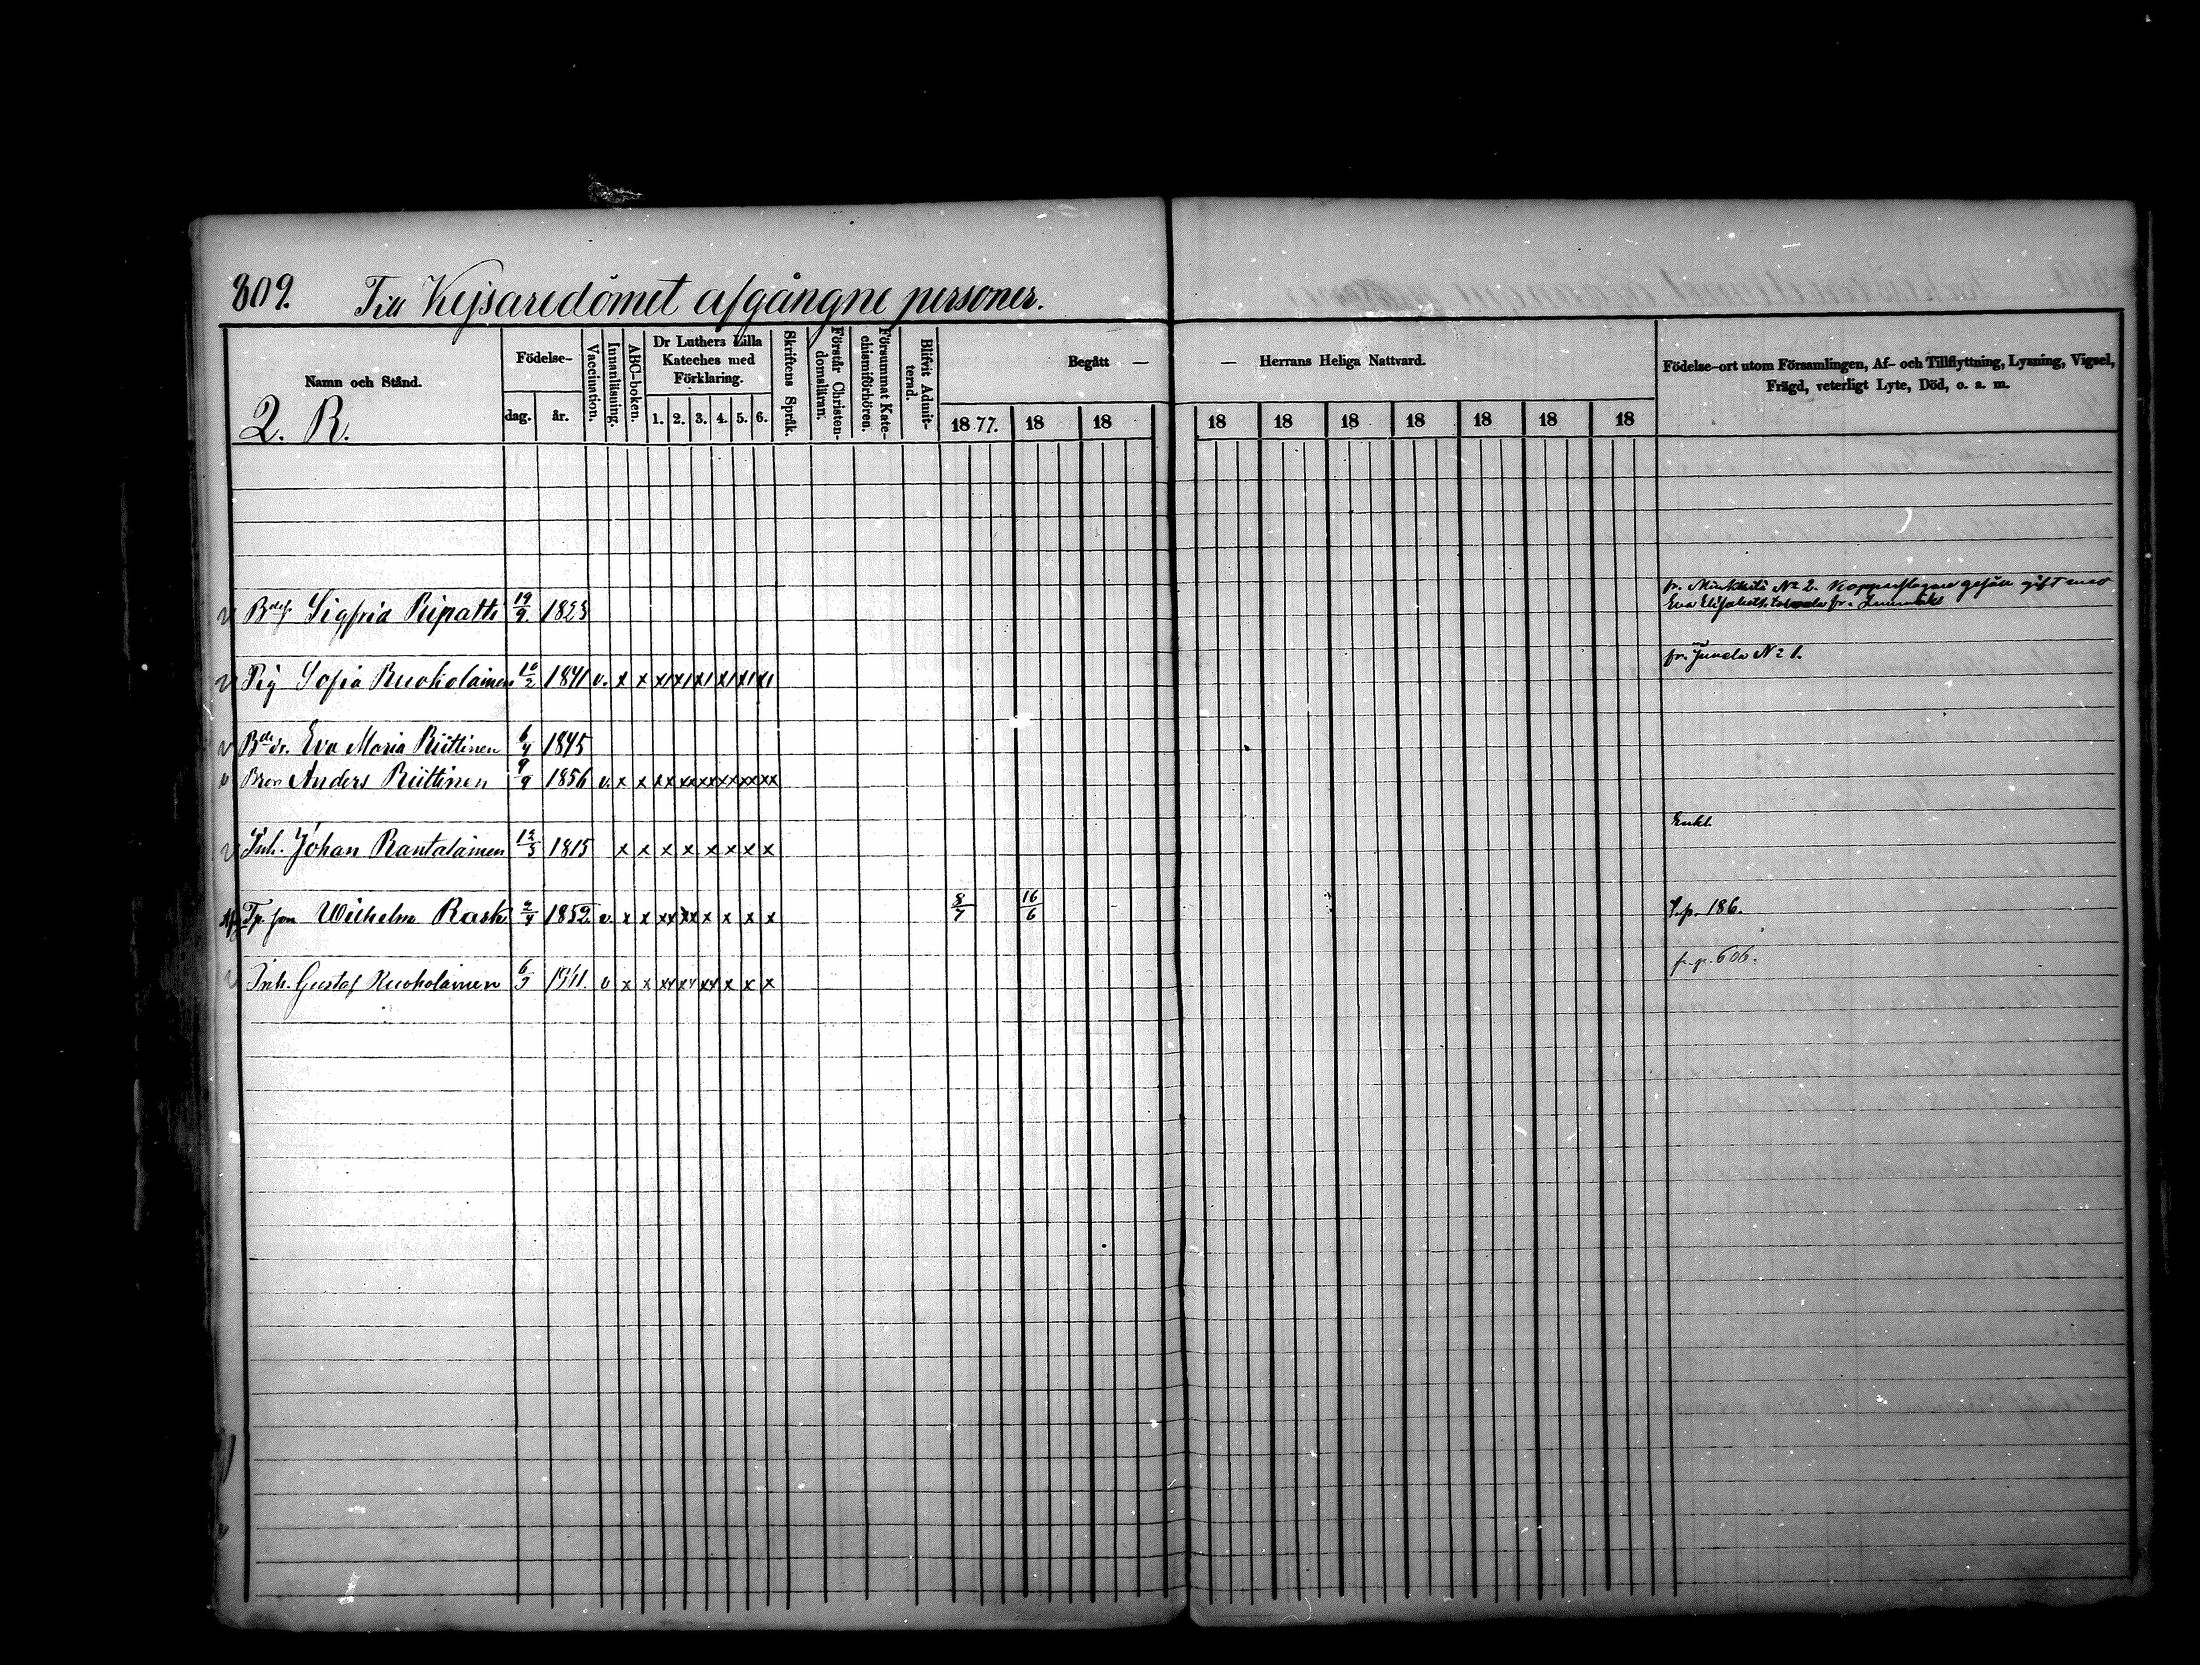 809. Till Kejsaredömet afgångne personer.
Namn och Stånd.
Födelse-
dag.
år.
Vaccination.
Innanläsning.
ABC-boken.
Dr Luthers Lilla
Kateches med
Förklaring.
1. 2. 3. 4. 5. 6.
Skriftens Språk.
Förstår Christen-
domsläran.
Försummat Kate-
chismiförhören.
Blifvit Admit-
terad.
Begått — — Herrans Heliga Nattvard.
Födelse-ort utom Församlingen, Af- och Tillflyttning, Lysning, Vigsel,
Frägd, veterligt Lyte, Död, o. s. m.
2. R.
1877. 18 18 18 18 18 18 18 18 18
gift med
Sigfrid Ripatti 19/9. 1823 Eva Elisabeth
fr. Juvela No 1.
Pig Sofia Ruoholainen 10/2 1841 v. x x x x x x x x
Eva Maria Riittinen 6/4 1845
Bror Anders Riittinen 9/9 1856 v. x x xx xx xx xx xx xx
Enkl.
Inh. Johan Rantalainen 12/3 1815 x x x x x x x x
Wilhelm Rask 1852 v. x x xx xx x x x x 8/7 16/6 186.
fr. p. 606.
Inh. Gustaf Ruoholainen 6/3 1841. v x x xx xx xx x x x